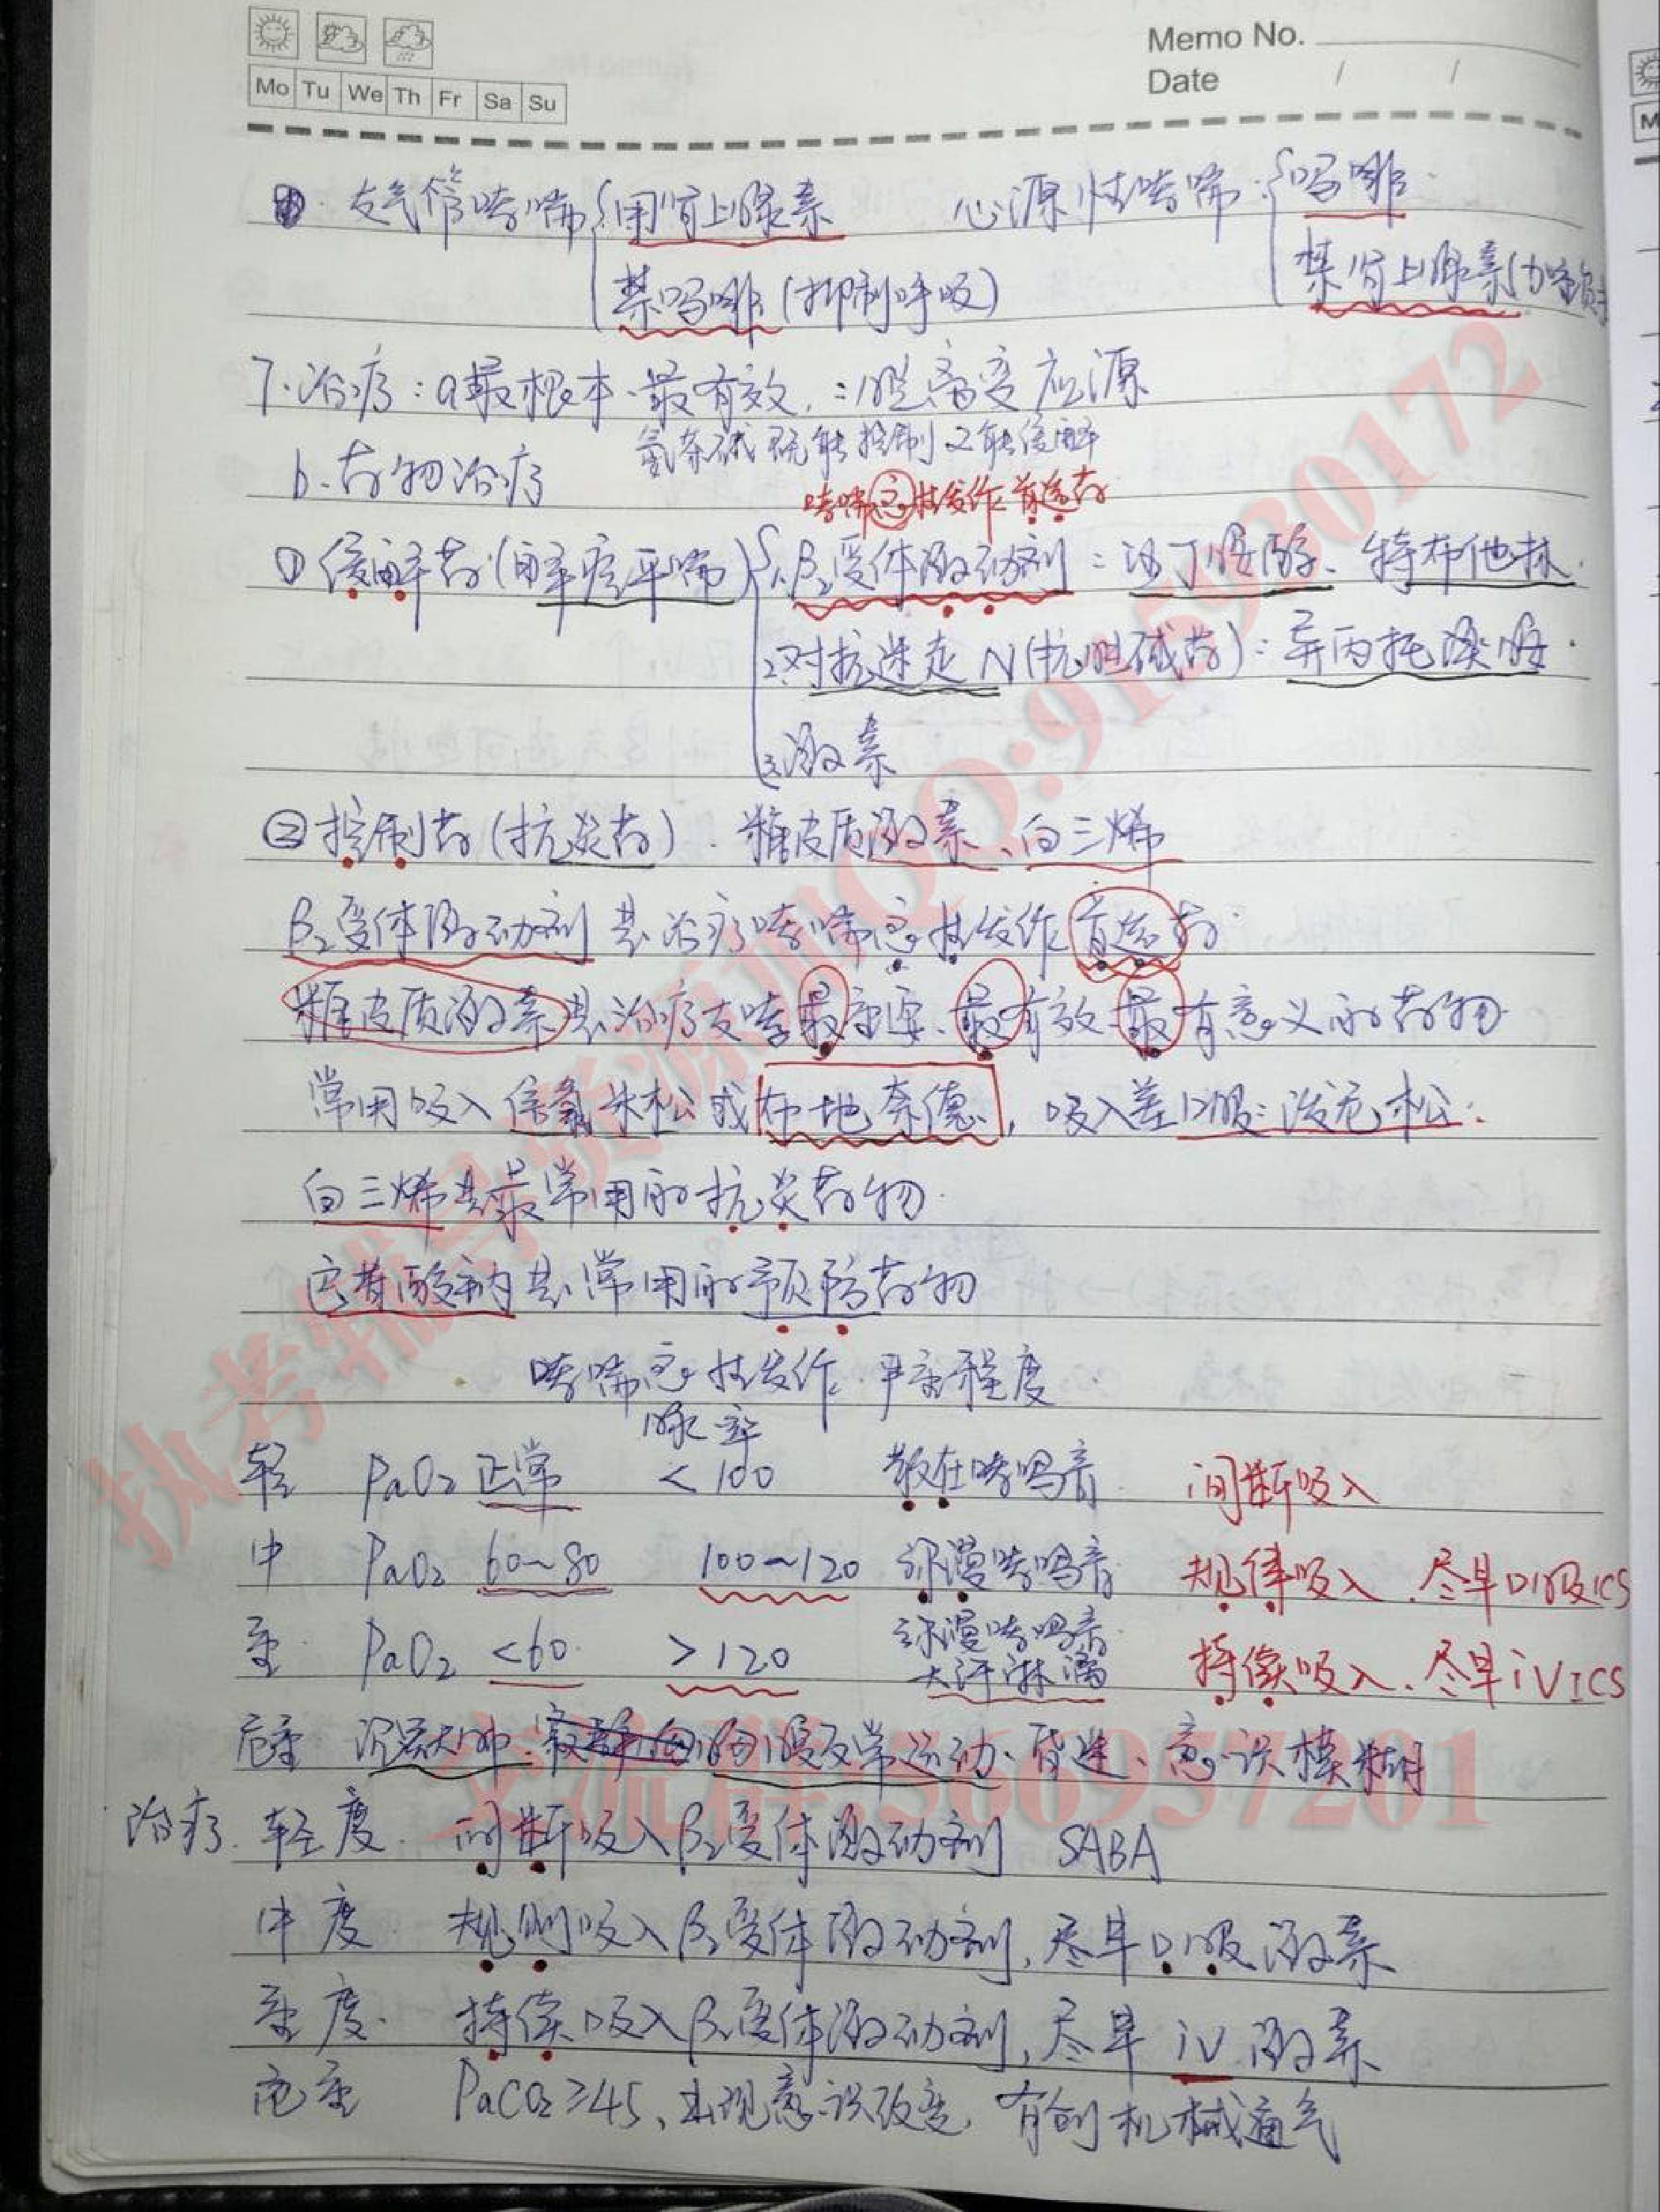 Memo No.
Mo Tu We Th Fr Sa Su
Date / /
支气管哮喘 用肾上腺素 心源性哮喘: 吗啡
禁吗啡(抑制呼吸) 禁肾上腺素
7.治疗:a最根本.最有效,:脱离变应源
氨茶碱既能控制又能缓解
b.药物治疗
哮喘急性发作首选药
①缓解药(解痉平喘) 1.β₂受体激动剂:沙丁胺醇、特布他林
2.对抗迷走N(抗胆碱药):异丙托溴胺.
3.激素
②控制药(抗炎药).糖皮质激素、白三烯
β₂受体激动剂是治疗哮喘急性发作首选药
糖皮质激素是治疗支哮最重要、最有效、最有意义的药物
常用吸入倍氯米松或布地奈德,吸入差口服:泼尼松.
白三烯是最常用的抗炎药物
色苷酸钠是常用的预防药物
哮喘急性发作严重程度
脉率
轻 PaO₂正常 <100 散在哮鸣音 间断吸入
中 PaO₂ 60~80 100~120 弥漫哮鸣音 规律吸入.尽早口服ICS
重 PaO₂ <60 >120 弥漫哮鸣音 大汗淋漓 持续吸入.尽早iVICS
危重 沉默肺. 胸腹反常运动、昏迷、意识模糊
治疗. 轻度 间断吸入β₂受体激动剂 SABA
中度 规则吸入β₂受体激动剂,尽早口服激素
重度. 持续吸入β₂受体激动剂,尽早iV激素
危重 PaCO₂≥45、出现意识改变,有创机械通气
执考辅导资源加QQ:915930172
交流群:566957201